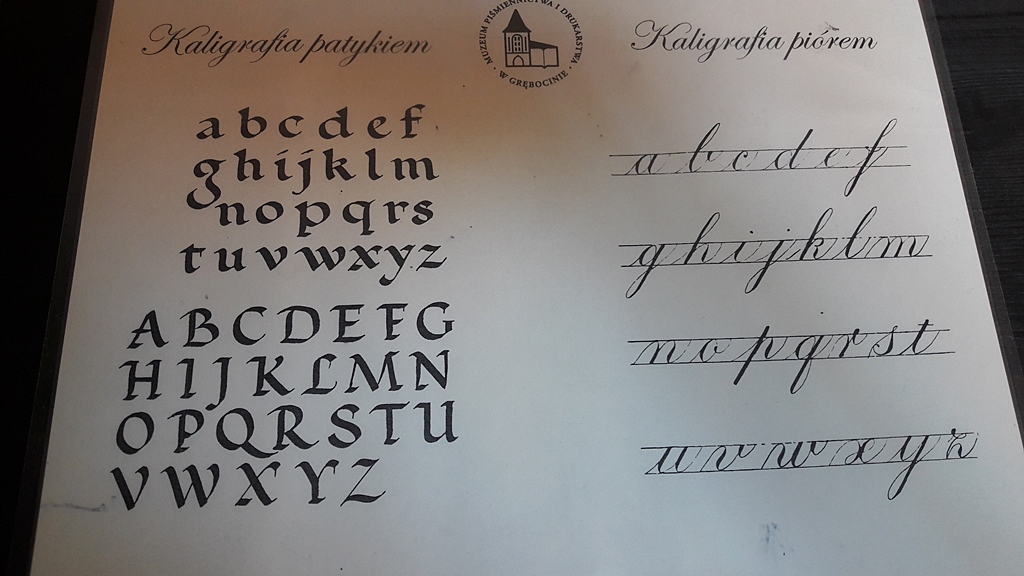 Kaligrafia patykiem
MUZEUM PIŚMIENNICTWA I DRUKARSTWA
W GRĘBOCINIE
Kaligrafia piórem
a b c d e f
g h i j k l m
n o p q r s
t u v w x y z
A B C D E F G
H I J K L M N
O P Q R S T U
V W X Y Z
a b c d e f
g h i j k l m
n o p q r s t
u v w x y z